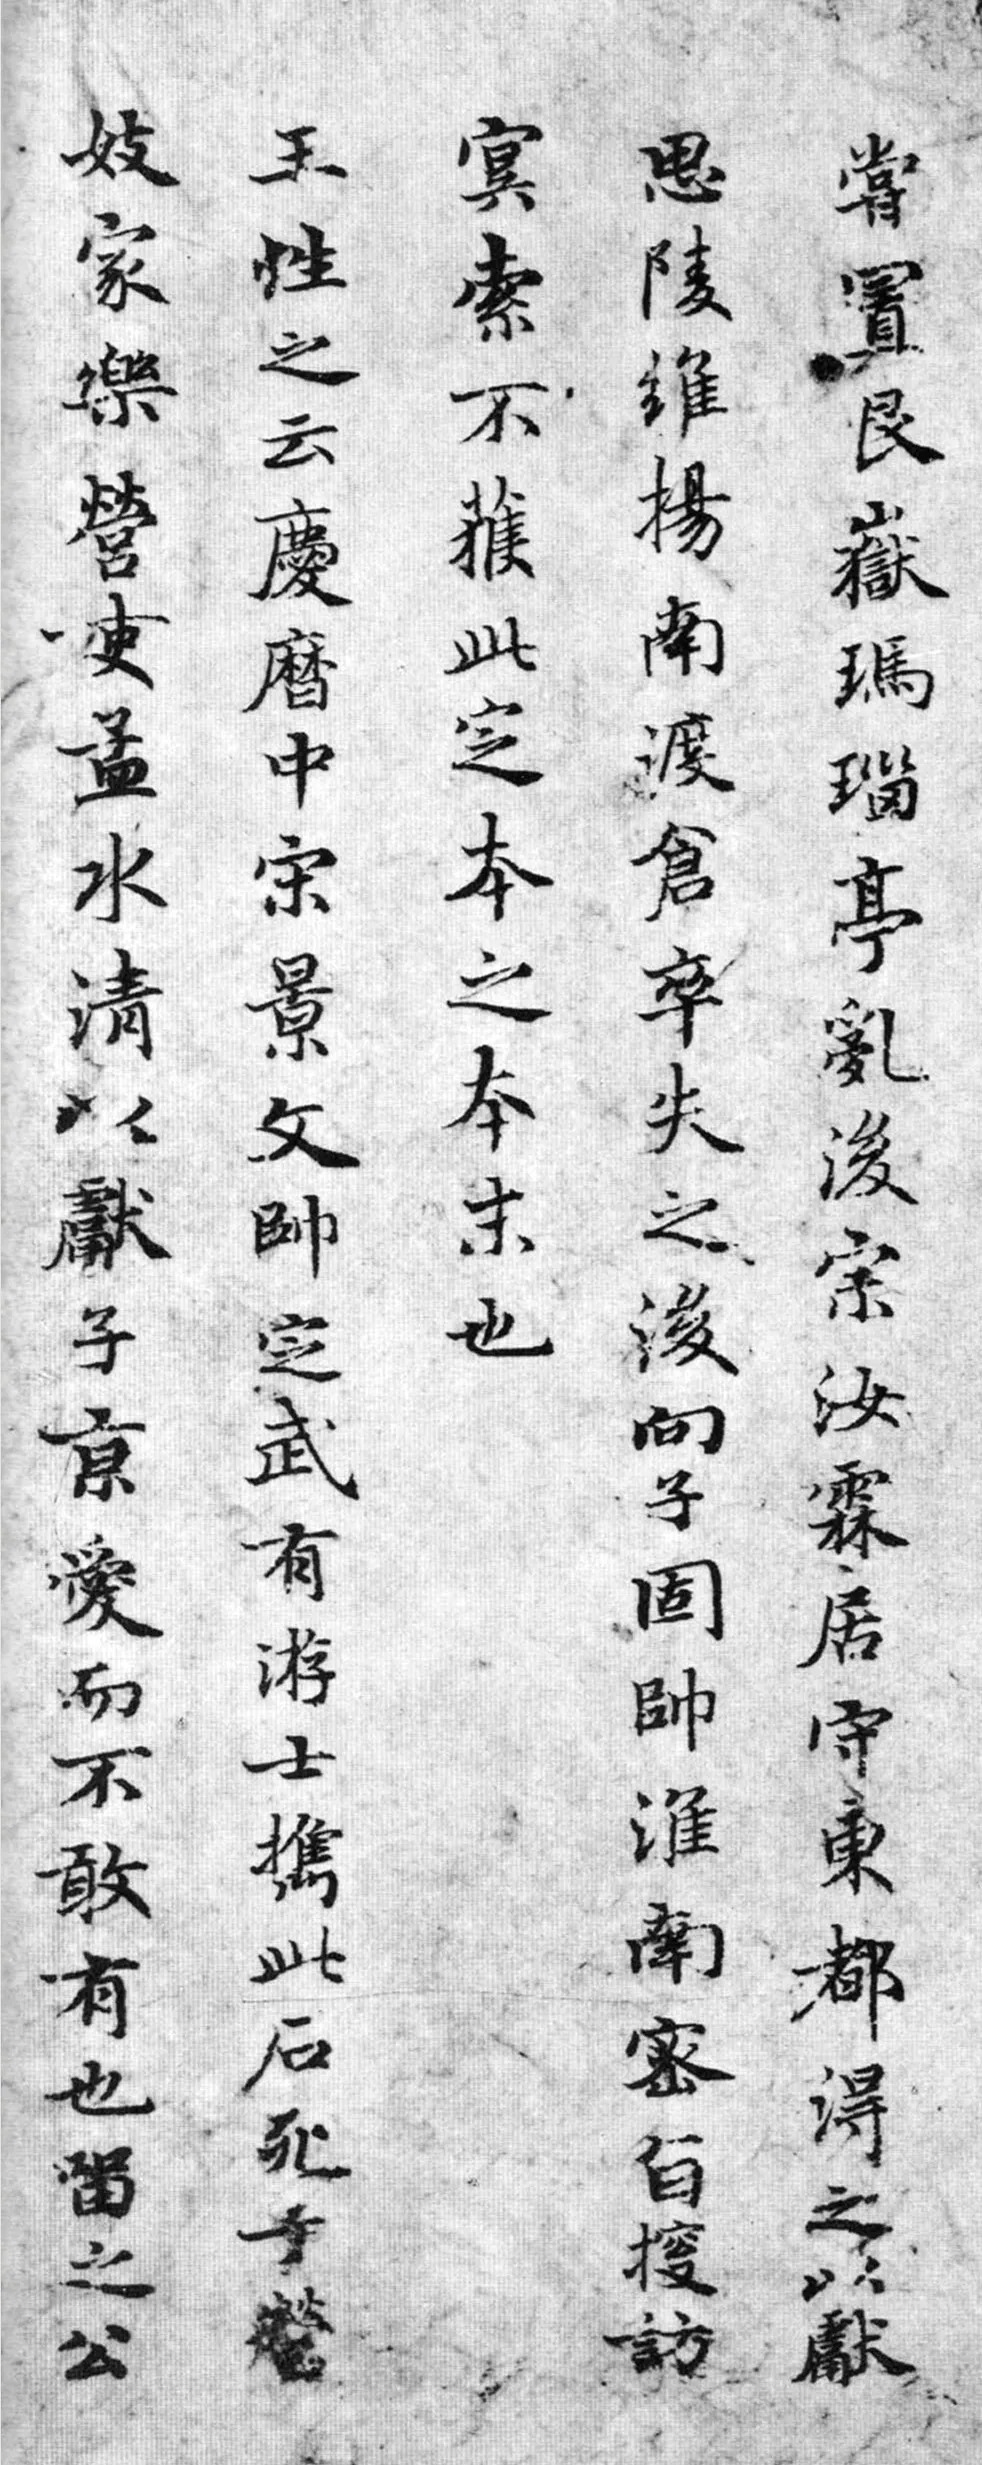 嘗置艮嶽瑪瑙亭亂後宗汝霖居守東都得之以獻
思陵維揚南渡倉卒失之後向子固帥淮南密旨搜訪
冥索不獲此定本之本末也
王性之云慶曆中宋景文帥定武有游士攜此石死于營
妓家樂營吏孟水清以獻子京愛而不敢有也留之公